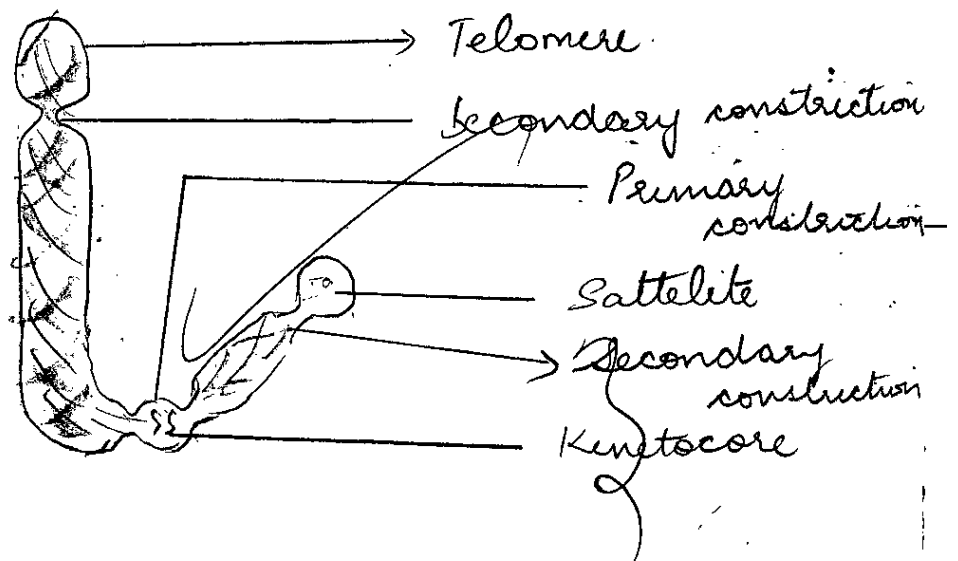 Telomere
Secondary constriction
Primary
constriction
Sattelite
Secondary
constriction
Kinetocore